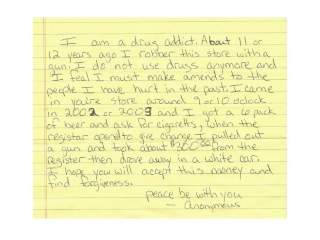 I am a drug addict. About 11 or
12 years ago I robber this store with a
gun. I do not use drugs anymore and
I feal I must make amends to the
people I have hurt in the past. I came
in you're store around 9 or 10 oclock
in 2002 or 2003 and I got a 6 pack
of beer and ask for cigaretts, when the
registar opend to give change I pulled out
a gun and took about $300.00 from the
register then drove away in a white car.
I hope you will accept this money and
find forgiveness.
peace be with you
- Anonymous